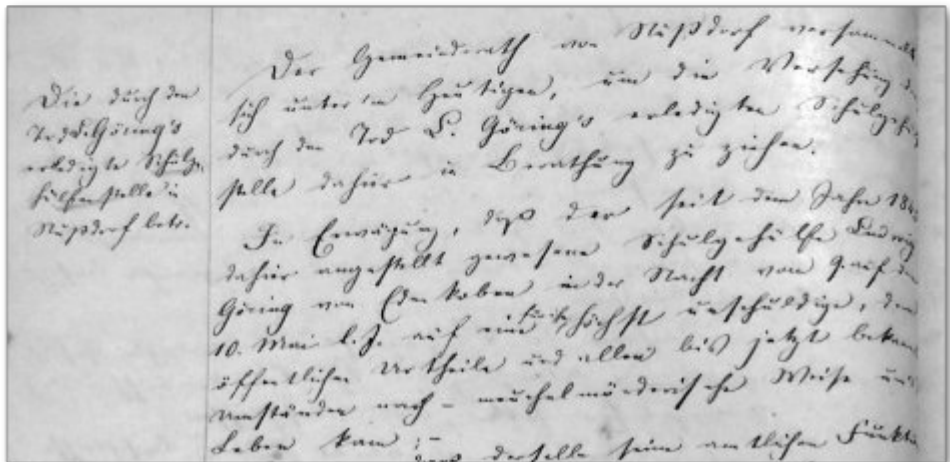 Die durch den
Tod L. Göring's
erledigte Schulge-
hülfenstelle in
Nußdorf betr.
Der Gemeinderath von Nußdorf versammelt
sich unterm Heutigen, um die Versehung der
durch den Tod L. Göring's erledigten Schulgehülfen-
stelle dahier in Berathung zu ziehen.
In Erwägung, daß der seit dem Jahre 184
dahier angestellt gewesene Schulgehülfe Ludwig
Göring von Edenkoben in der Nacht vom 9. auf den
10. Mai l. J. auf eine höchst unschuldige, dem
öffentlichen Urtheile und allen bis jetzt bekann
Umständen nach - meuchelmörderische Weise ums
Leben kam;-
daß derselbe seine amtlichen Funkti